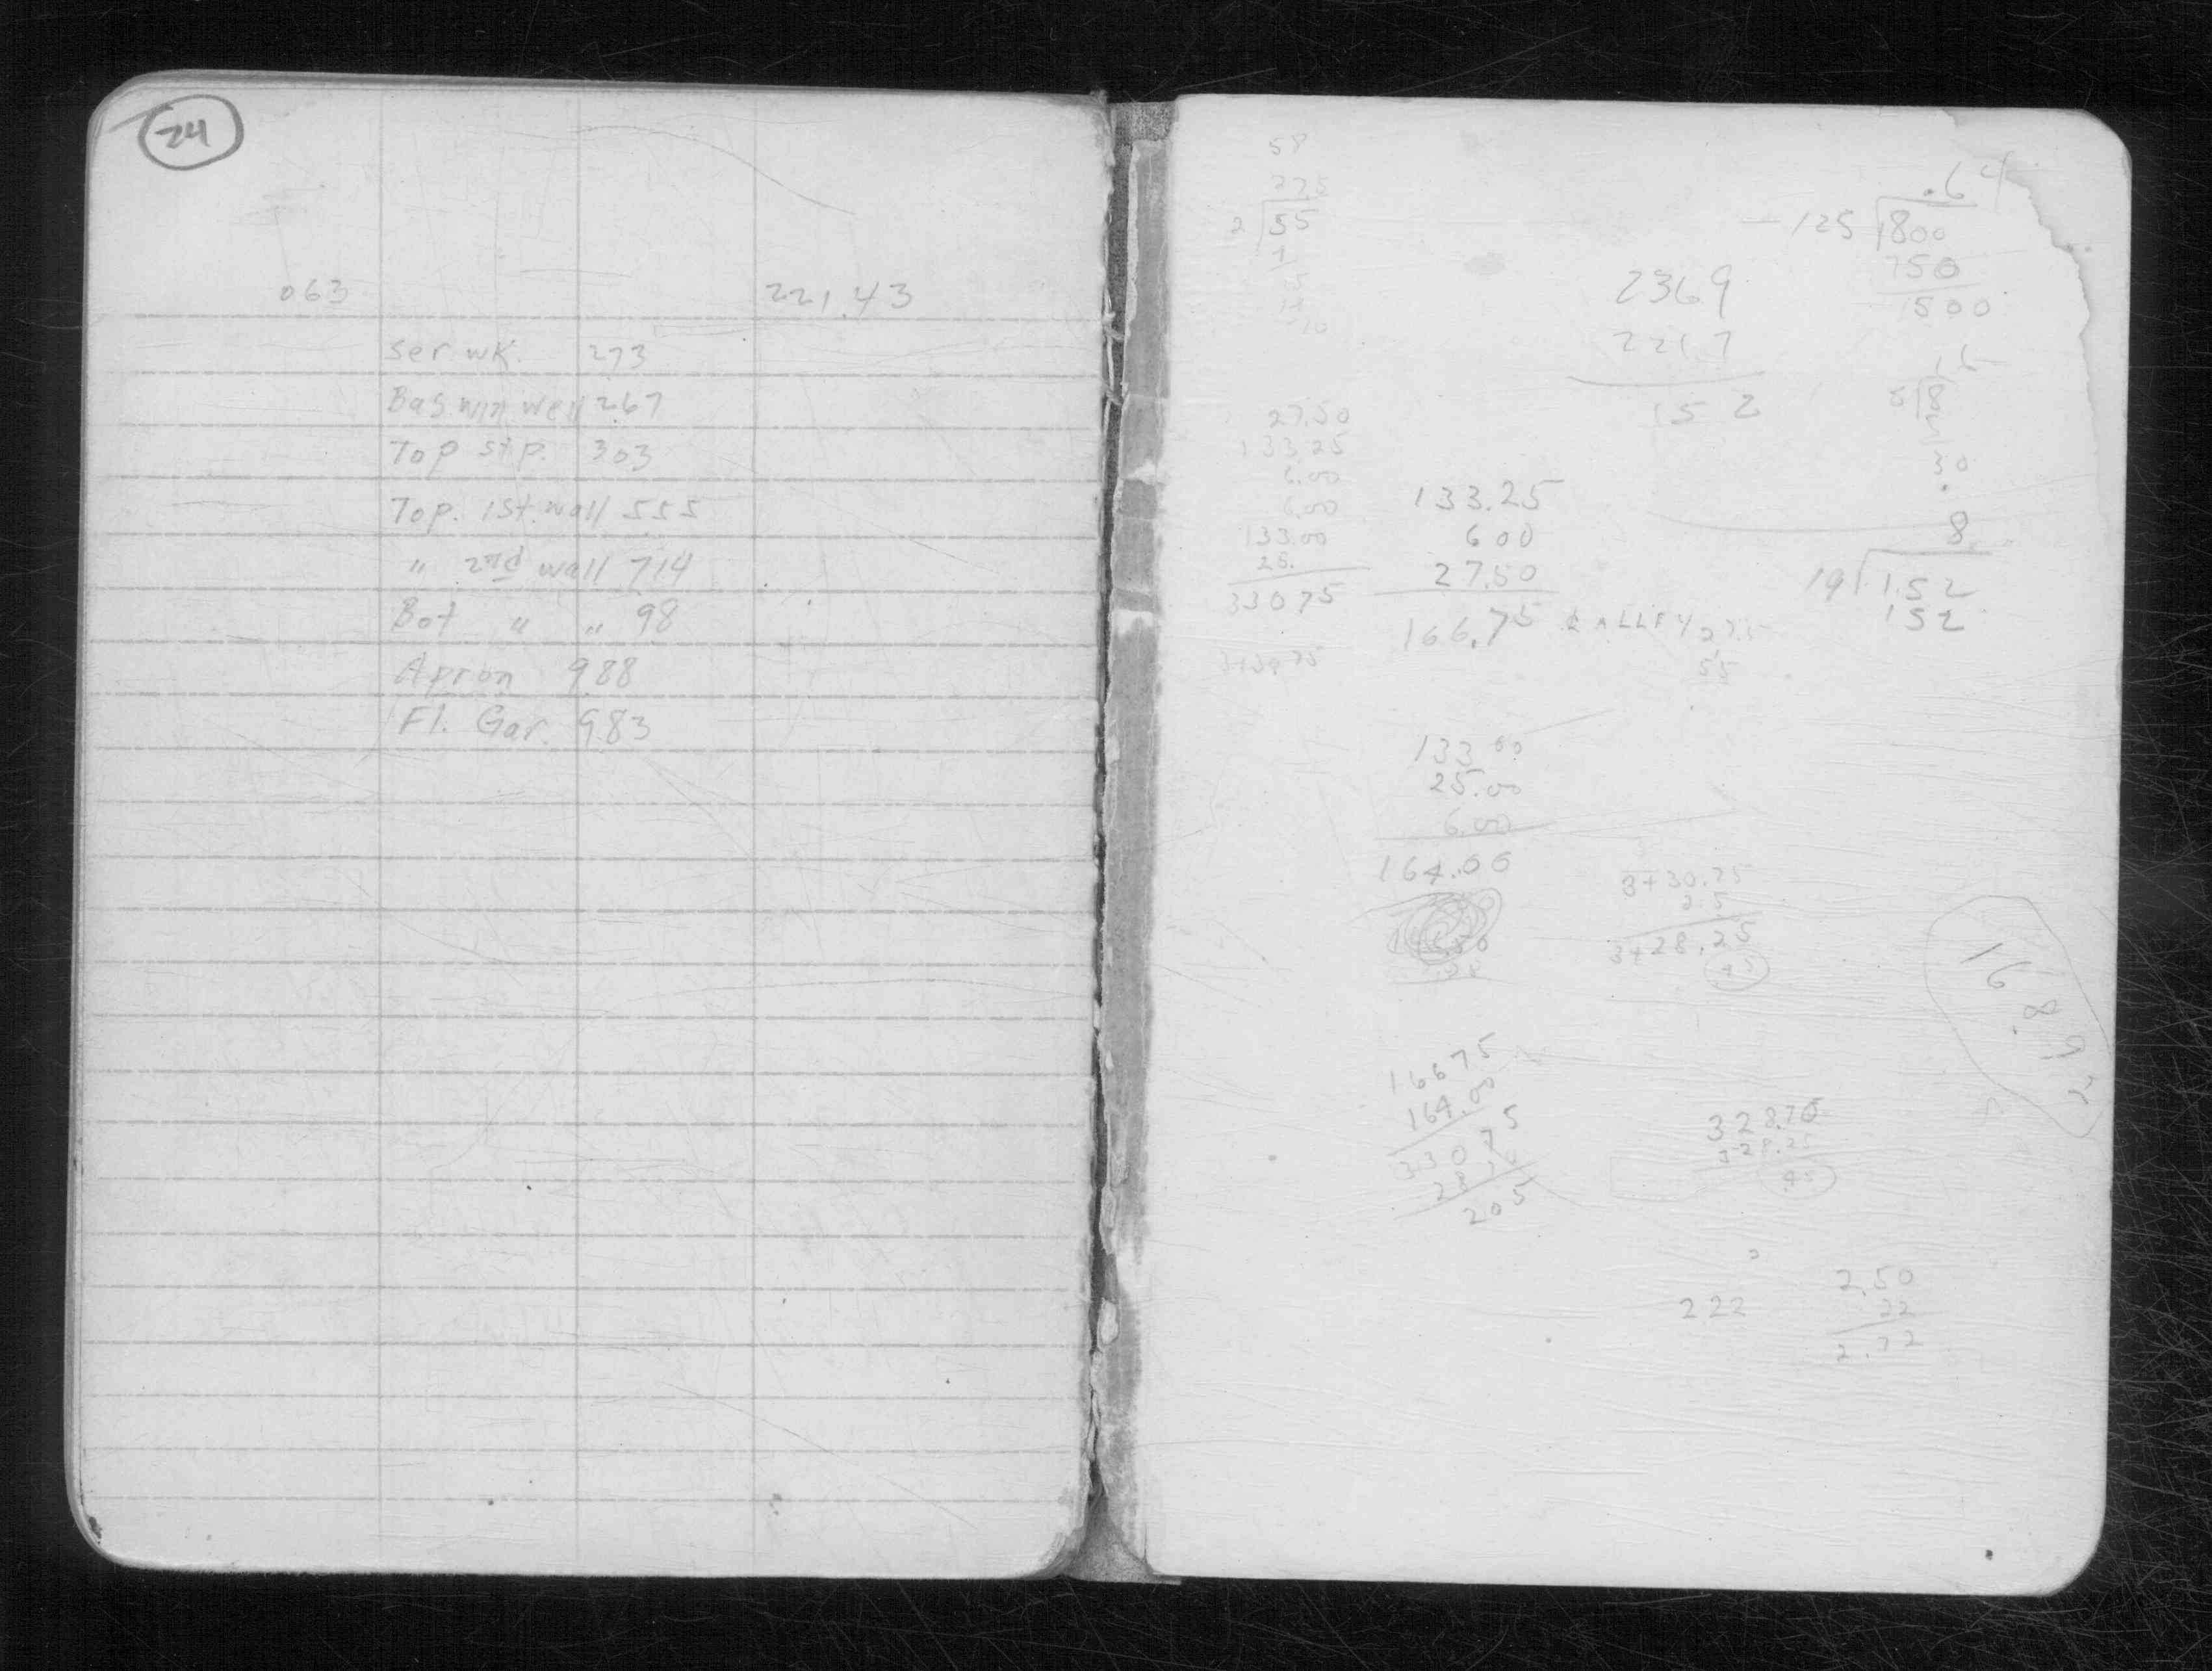 24
063 221.43
Ser. wk. 273
Bas win well 267
Top stp. 303
Top. 1st. wall 555
" 2nd wall 714
Bot " " 98
Apron 988
Fl. Gar. 983
58
275
2 55
.64
125 800
750
500
2369
2217
152
27.50
133.25
6.00
6.00
133.00
25.
33075
133.25
6 00
27.50
166.75
55
8
30
8
19 152
152
133 00
25.00
6.00
164.00
3+30.75
2 5
3+28.25
16675
164.00
33075
28
205
328.70
328.25
45
168.92
222
2.50
22
2.72